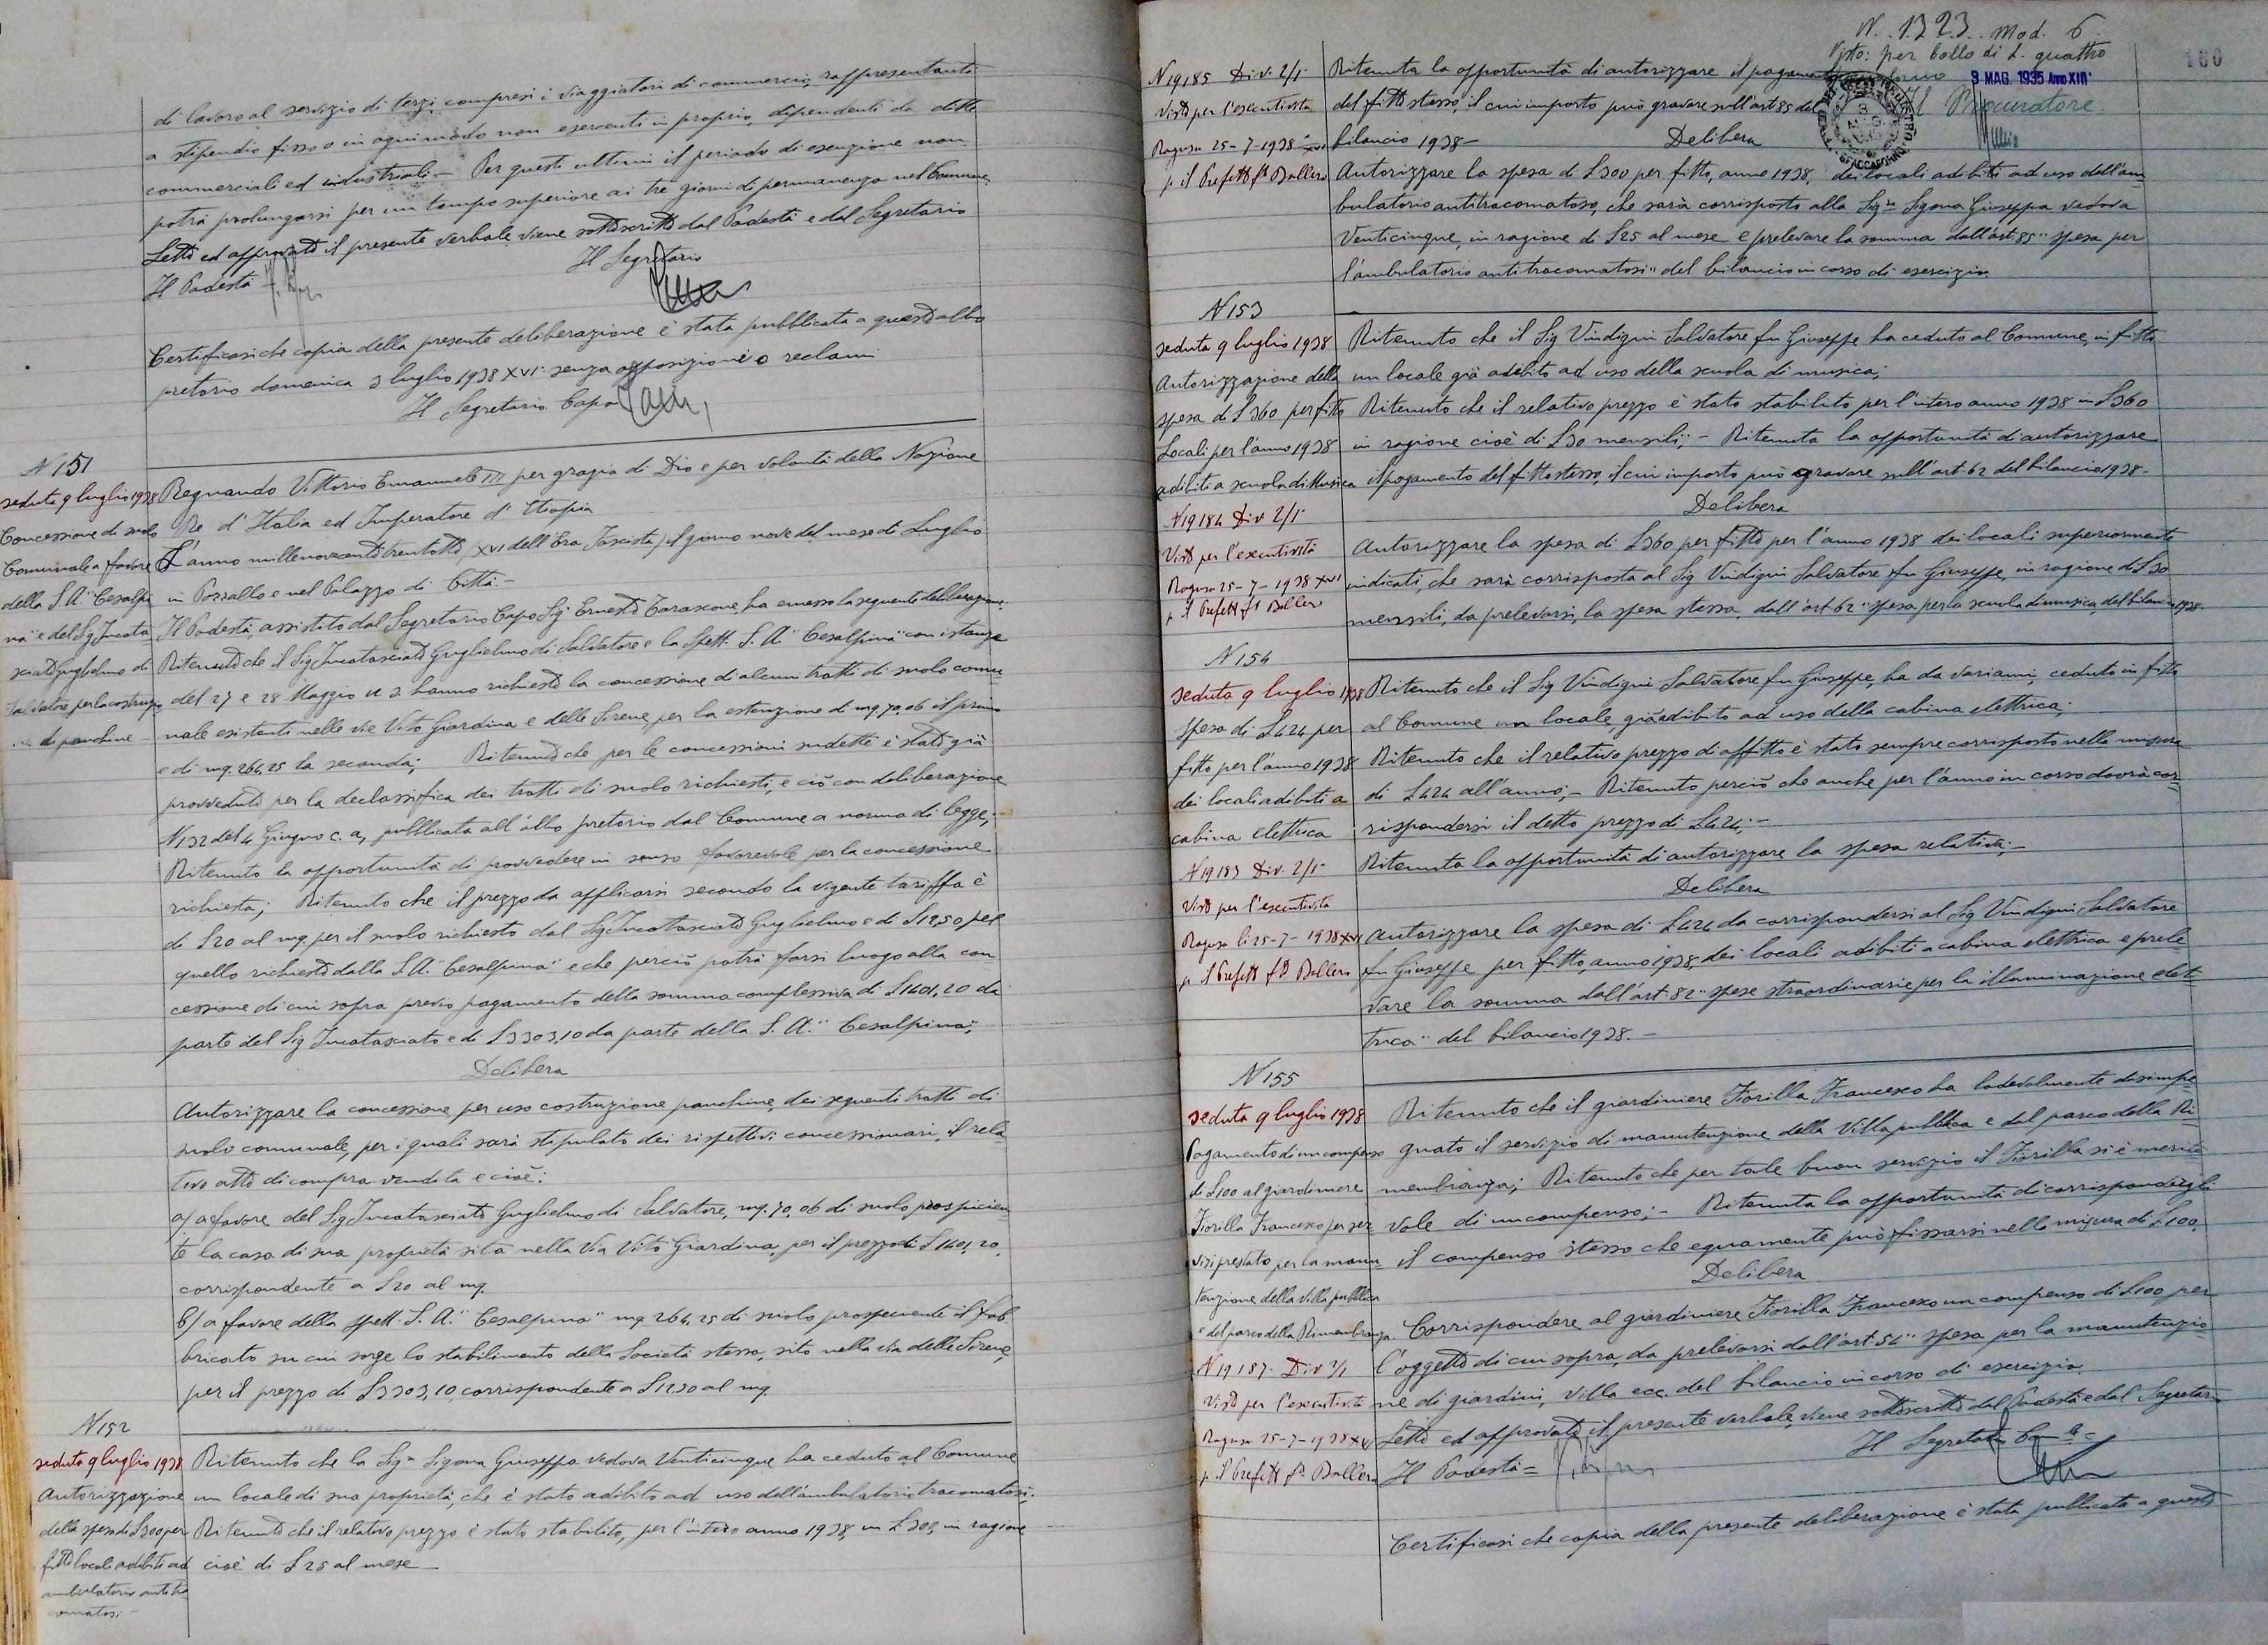 di lavoro al servizio di terzi, compresi i viaggiatori di commercio, rappresentanti
a stipendio fisso o in ogni modo non esercenti in proprio, dipendenti da ditte
commerciali ed industriali - Per questi ultimi il periodo di esenzione non
potrà prolungarsi per un tempo superiore ai tre giorni di permanenza nel Comune.
Letto ed approvato il presente verbale viene sottoscritto dal Podestà e dal Segretario
Il Podestà
Il Segretario
Certificasi che copia della presente deliberazione è stata pubblicata a quest'albo
pretorio domenica 3 luglio 1938 XVI senza opposizioni o reclami
Il Segretario Capo
N 151
seduta 9 luglio 1938
Concessione di suolo
Comunale a favore
della S.A. "Cesalpi
na" e del Sig Incata
sciato Guglielmo di
Salvatore per la costruzio
ne di panchine -
Regnando Vittorio Emanuele III per grazia di Dio e per volontà della Nazione
Re d'Italia ed Imperatore d'Etiopia
L'anno millenovecentotrentotto /XVI dell'Era Fascista/ il giorno nove del mese di Luglio
in Pozzallo e nel Palazzo di Città.-
Il Podestà, assistito dal Segretario Capo Sig Ernesto Tarascone, ha emesso la seguente deliberazione.
Ritenuto che il Sig Incatasciato Guglielmo di Salvatore e la Spett. S.A. "Cesalpina" con istanze
del 27 e 28 Maggio u s hanno richiesto la concessione di alcuni tratti di suolo comu
nale esistenti nelle vie Vito Giardina e delle Sirene, per la estenzione di mq. 70,06 il primo
e di mq. 264,25 la seconda; Ritenuto che per le concessioni sudette è stato già
provveduto per la declassifica dei tratti di suolo richiesti, e ciò con deliberazione
N 132 del 4 Giugno c. a, pubblicata all'albo pretorio dal Comune a norma di legge;
Ritenuto la opportunità di provvedere in senso favorevole per la concessione
richiesta; Ritenuto che il prezzo da applicarsi secondo la vigente tariffa è
di £20 al mq. per il suolo richiesto dal Sig Incatasciato Guglielmo e di £12,50 per
quello richiesto dalla S.A. "Cesalpina" e che perciò potrà farsi luogo alla con
cessione di cui sopra previo pagamento della somma complessiva di £1401,20 da
parte del Sig Incatasciato e di £3303,10 da parte della S.A. "Cesalpina";
Delibera
Autorizzare la concessione, per uso costruzione panchine, dei seguenti tratti di
suolo comunale, per i quali sarà stipulato dei rispettivi concessionari, il rela
tivo atto di compra vendita e cioè:
a/ a favore del Sig Incatasciato Guglielmo di Salvatore, mq. 70,06 di suolo prospicien
te la casa di sua proprietà sita nella Via Vito Giardina, per il prezzo di £1401,20,
corrispondente a £20 al mq.
b/ a favore della spett. S.A. "Cesalpina" mq 264,25 di suolo prospiciente il fab
bricato su cui sorge lo stabilimento della Società stessa, sito nella via delle Sirene,
per il prezzo di £3303,10, corrispondente a £12,50 al mq.
N 152
seduta 9 luglio 1938
Autorizzazione
della spesa di £300 per
fitto locali adibiti ad
ambulatorio antitra
comatosi -
Ritenuto che la Sigra Sigona Giuseppa vedova Venticinque ha ceduto al Comune
un locale di sua proprietà, che è stato adibito ad uso dell'ambulatorio tracomatosi.
Ritenuto che il relativo prezzo è stato stabilito, per l'intero anno 1938, in £300, in ragione
cioè di £25 al mese -
N. 1323. Mod. 6
Visto: per bollo di L. quattro
3 MAG. 1935 Anno XIII°
Il Procuratore
160
N 19185 Div. 2/1
Visto per l'esecutività
Ragusa 25-7-1938 XVI
p il Prefetto fto Ballero
Ritenuta la opportunità di autorizzare il pagamento
del fitto stesso, il cui importo può gravare sull'art 85 del
bilancio 1938 -
Delibera
Autorizzare la spesa di £300 per fitto, anno 1938, dei locali adibiti ad uso dell'am
bulatorio antitracomatoso, che sarà corrisposto alla Sigra Sigona Giuseppa vedova
Venticinque, in ragione di £25 al mese e prelevare la somma dall'art. 85 "spesa per
l'ambulatorio antitracomatosi" del bilancio in corso di esercizio
N 153
seduta 9 luglio 1938
Autorizzazione della
spesa di £360 per fitto
Locali per l'anno 1938
adibiti a scuola di Musica
N 19184 Div 2/1
Visto per l'esecutività
Ragusa 25-7-1938 XVI
p il Prefetto fto Ballero
Ritenuto che il Sig Vindigni Salvatore fu Giuseppe ha ceduto al Comune, in fitto
un locale già adibito ad uso della scuola di musica;
Ritenuto che il relativo prezzo è stato stabilito per l'intero anno 1938 in £360
in ragione cioè di £30 mensili; - Ritenuta la opportunità di autorizzare
il pagamento del fitto stesso, il cui importo può gravare sull'art. 62 del bilancio 1938 -
Delibera
Autorizzare la spesa di £360 per fitto per l'anno 1938 dei locali superiormente
indicati, che sarà corrisposta al Sig Vindigni Salvatore fu Giuseppe, in ragione di £30
mensili, da prelevarsi, la spesa stessa, dall'art. 62 "spesa per la scuola di musica, del bilancio 1938 -
N 154
seduta 9 luglio 1938
Spesa di £424 per
fitto per l'anno 1938
dei locali adibiti a
cabina elettrica
N 19183 Div. 2/1
Visto per l'esecutività
Ragusa li 25-7-1938 XVI
p il Prefetto fto Ballero
Ritenuto che il Sig Vindigni Salvatore fu Giuseppe, ha da vari anni, ceduto in fitto
al Comune un locale, già adibito ad uso della cabina elettrica;
Ritenuto che il relativo prezzo di affitto è stato sempre corrisposto nella misura
di £424 all'anno; - Ritenuto perciò che anche per l'anno in corso dovrà cor
rispondersi il detto prezzo di £424; -
Ritenuta la opportunità di autorizzare la spesa relativa; -
Delibera
Autorizzare la spesa di £424 da corrispondersi al Sig Vindigni Salvatore
fu Giuseppe per fitto, anno 1938, dei locali adibiti a cabina elettrica e prele
vare la somma dall'art. 82 "spese straordinarie per la illuminazione elet
trica" del bilancio 1938. -
N 155
seduta 9 luglio 1938
Pagamento di un compenso
di £100 al giardiniere
Fiorilla Francesco per ser
vizi prestato per la manu
tenzione della villa pubblica
e del parco della Rimembranza
N 19187. Div 2/1
Visto per l'esecutività
Ragusa 25-7-1938 XVI
p il Prefetto fto Ballero
Ritenuto che il giardiniere Fiorilla Francesco ha lodevolmente disimpe
gnato il servizio di manutenzione della Villa pubblica e dal parco della Ri
membranza; Ritenuto che per tale buon servizio il Fiorilla si è merite
vole di un compenso; - Ritenuta la opportunità di corrispondergli
il compenso stesso che equamente può fissarsi nella misura di £100.
Delibera
Corrispondere al giardiniere Fiorilla Francesco un compenso di £100 per
l'oggetto di cui sopra, da prelevarsi dall'art. 54 "spesa per la manutenzio
ne di giardini, Villa ecc. del bilancio in corso di esercizio.
Letto ed approvato il presente verbale, viene sottoscritto dal Podestà e dal Segretario
Il Podestà =
Il Segretario
Certificasi che copia della presente deliberazione è stata pubblicata a questo